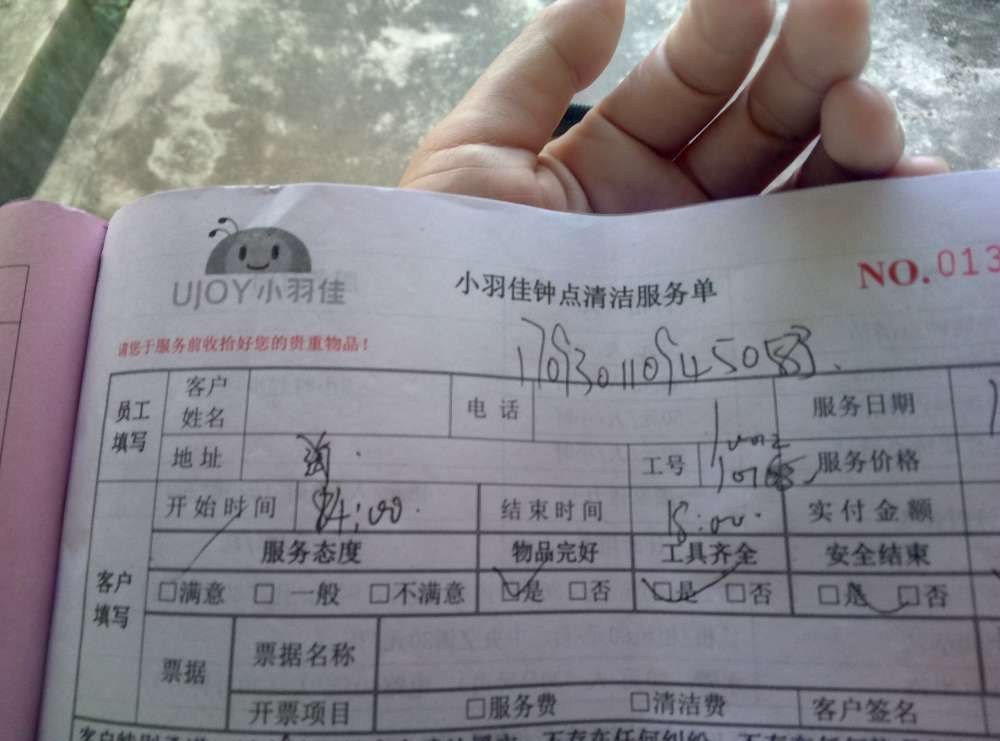 UJOY小羽佳
小羽佳钟点清洁服务单
NO.013
请您于服务前收拾好您的贵重物品！
员工填写
客户姓名
电话
服务日期
地址
工号
服务价格
客户填写
开始时间 14:00
结束时间 18:00
实付金额
服务态度 物品完好 工具齐全 安全结束
□满意 □一般 □不满意 □是 □否 □是 □否 □是 □否
票据
票据名称
开票项目 □服务费 □清洁费 客户签名